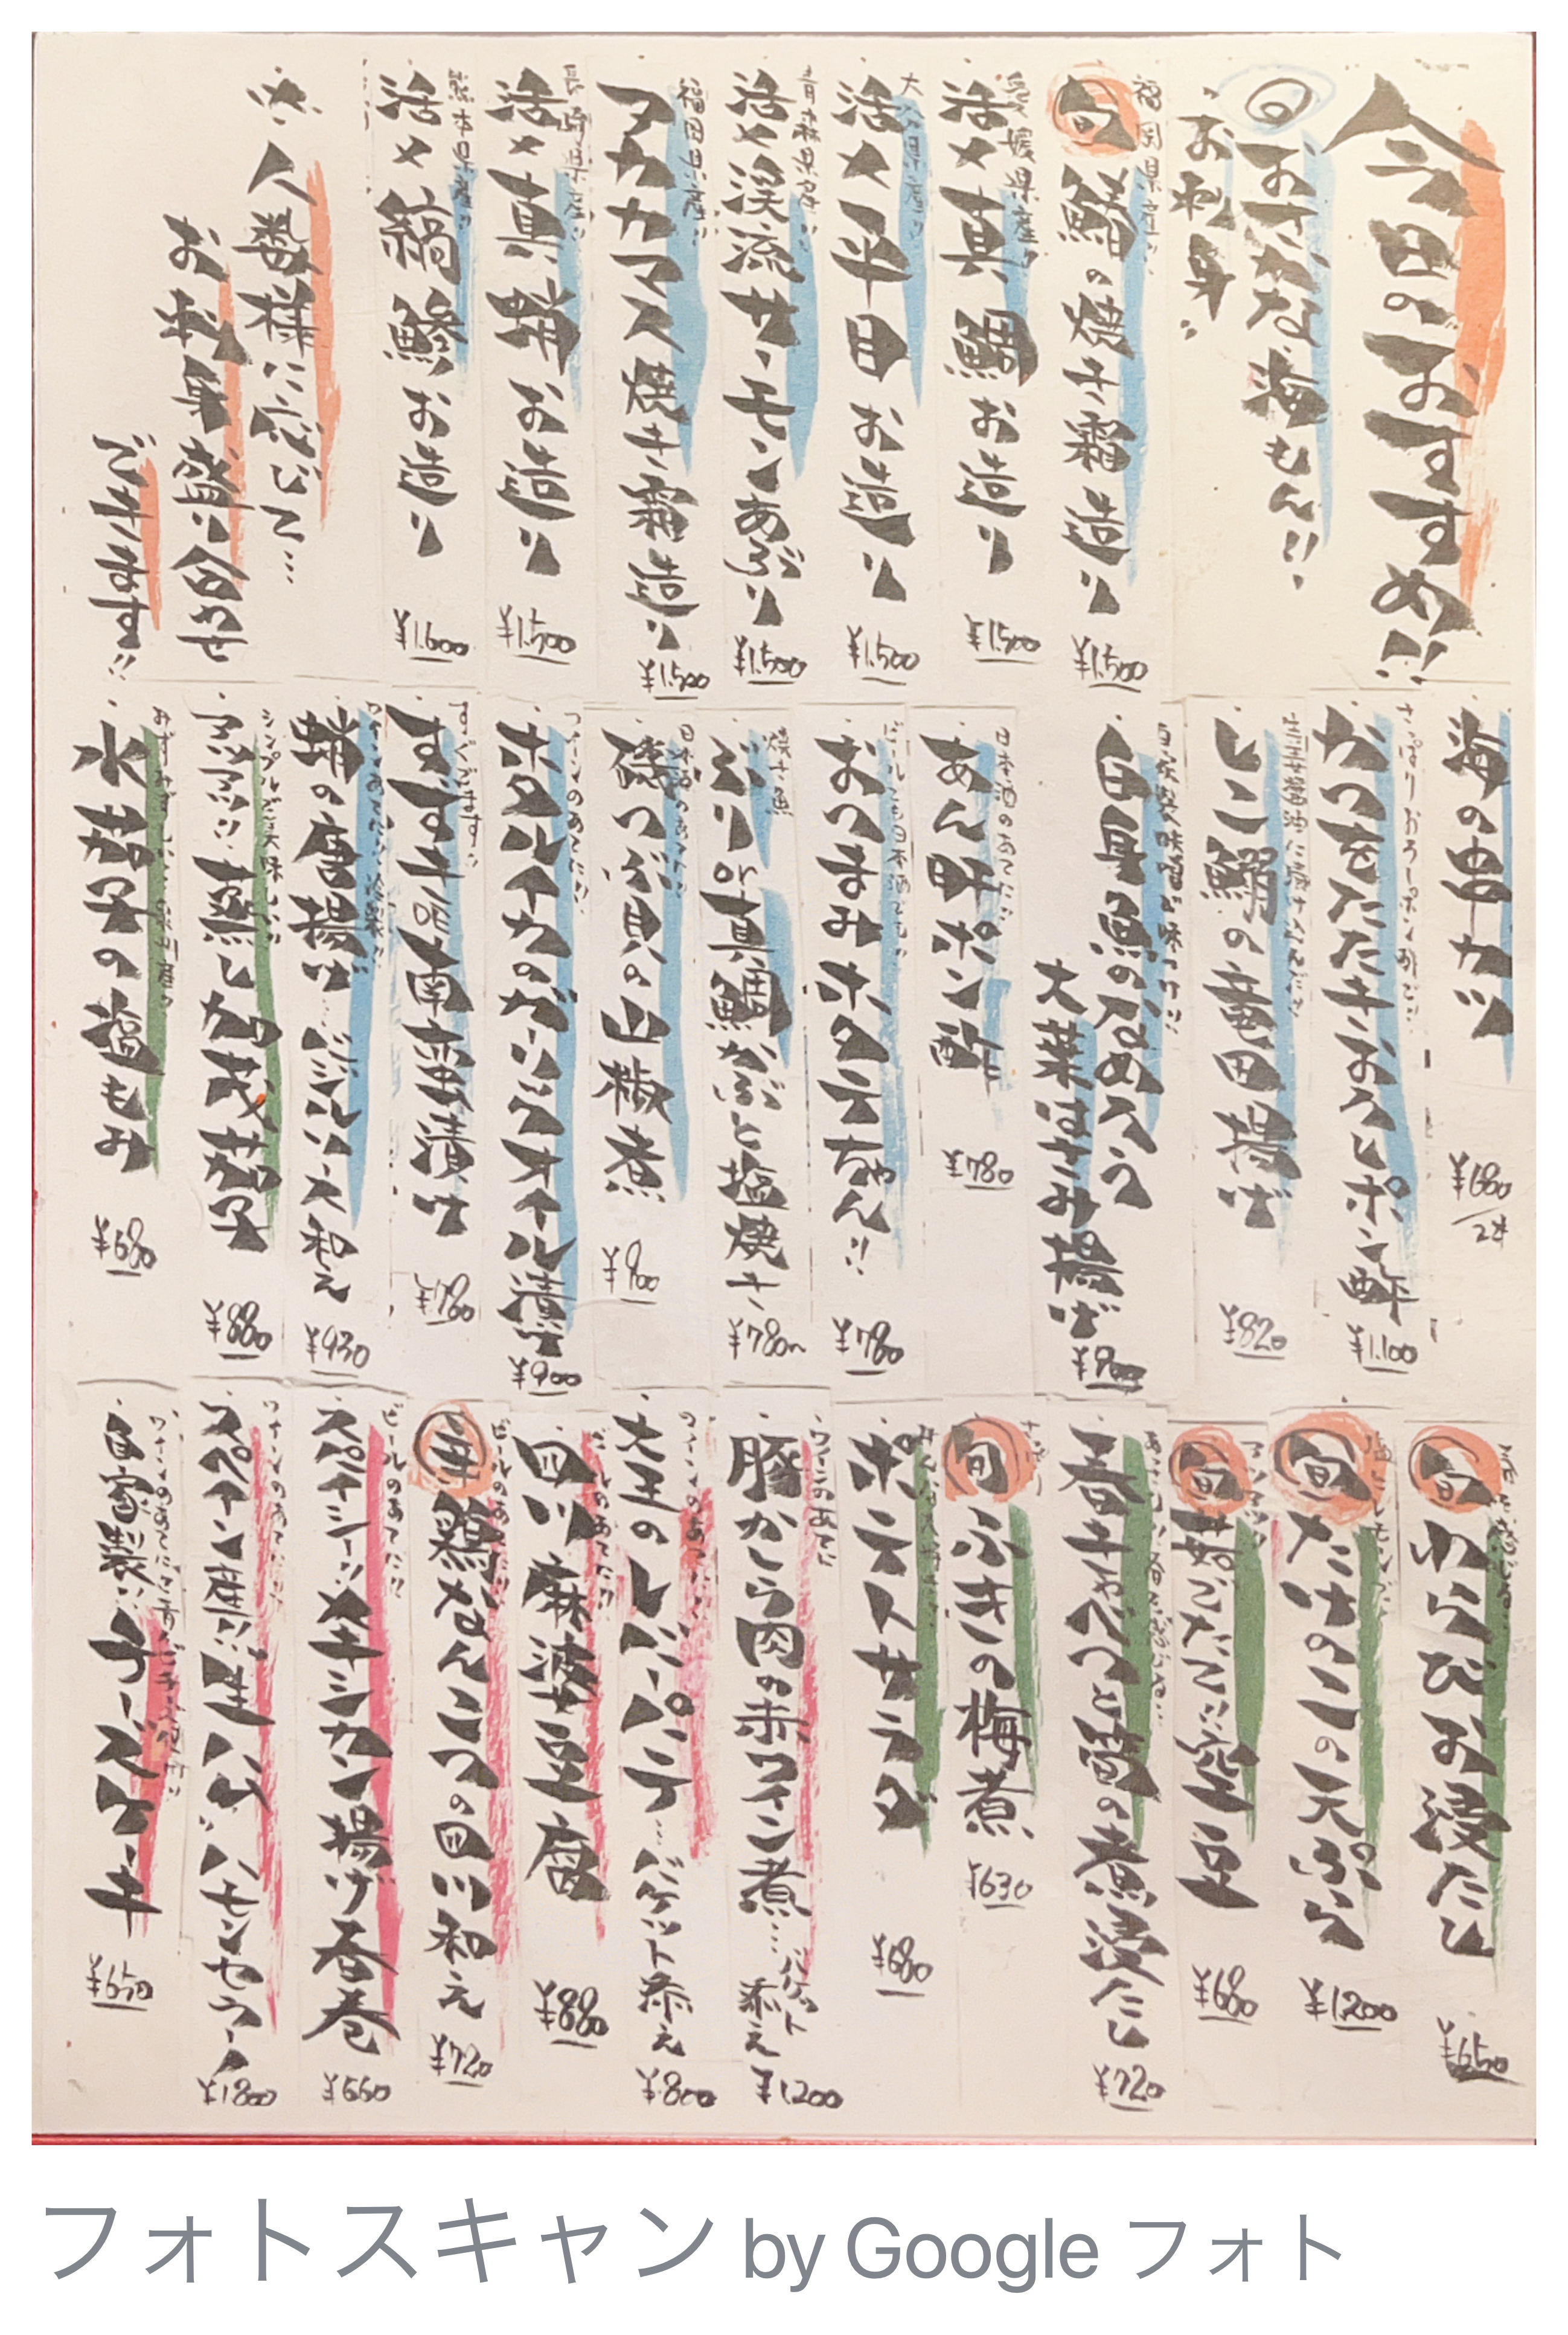 今日のおすすめ!!
◎おさかな海もん!!
・お刺身!!
福岡県産!!
旬 鰆の焼き霜造り
¥1,500
愛媛県産!!
活〆真鯛お造り
¥1,500
大分県産!!
活〆平目お造り
¥1,500
青森県産!!
活〆渓流サーモンあぶり
¥1,500
福岡県産!!
アカカマス焼き霜造り
¥1,500
長崎県産!!
活〆真蛸お造り
¥1,500
熊本県産!!
活〆縞鯵お造り
¥1,600
人数様に応じて…
お刺身盛り合わせ
できます!!
海の串カツ
¥680/2本
さっぱりおろしポン酢で!!
かつをたたきおろしポン酢
¥1,100
生姜醤油に漬け込んで!!
しこ鰯の竜田揚げ
¥820
自家製味噌が味つけ!!
白身魚のなめろう
大葉はさみ揚げ
¥900
日本酒のあてに!!
あん肝ポン酢
¥780
ビールでも日本酒でも!!
おつまみホタテちゃん!!
¥780
焼き魚
ぶりor真鯛かぶと塩焼き
¥780〜
日本酒のあてに!!
磯つぶ貝の山椒煮
¥900
ワインのあてに!!
ホタルイカのガーリックオイル漬け
¥900
すぐでます!!
すずき南蛮漬け
¥780
蛸の唐揚げ…バジルソース和え
¥930
シンプルで美味しい!!
アツアツ!!蒸し加茂茄子
¥880
水茄子の塩もみ
¥680
旬 わらびお浸たし
¥650
旬 たけのこの天ぷら
¥1200
旬 茹でたて!!空豆
¥680
春キャベツと筍の煮浸たし
¥720
旬 ふきの梅煮
¥630
ポテトサラダ
¥680
ワインのあてに
豚かしら肉の赤ワイン煮…バゲット添え
¥1200
ワインのあてに!!
大山のレバーパテ…バゲット添え
¥800
ビールのあてに!!
四川麻婆豆腐
¥880
ビールのあてに!!
鶏なんこつの四川和え
¥720
ビールのあてに!!
スパイシーメキシカン揚げ春巻
¥660
ワインのあてに!!
スペイン産!!生ハム"ハモンセラーノ
¥1800
自家製!!チーズケーキ
¥650
フォトスキャン by Google フォト